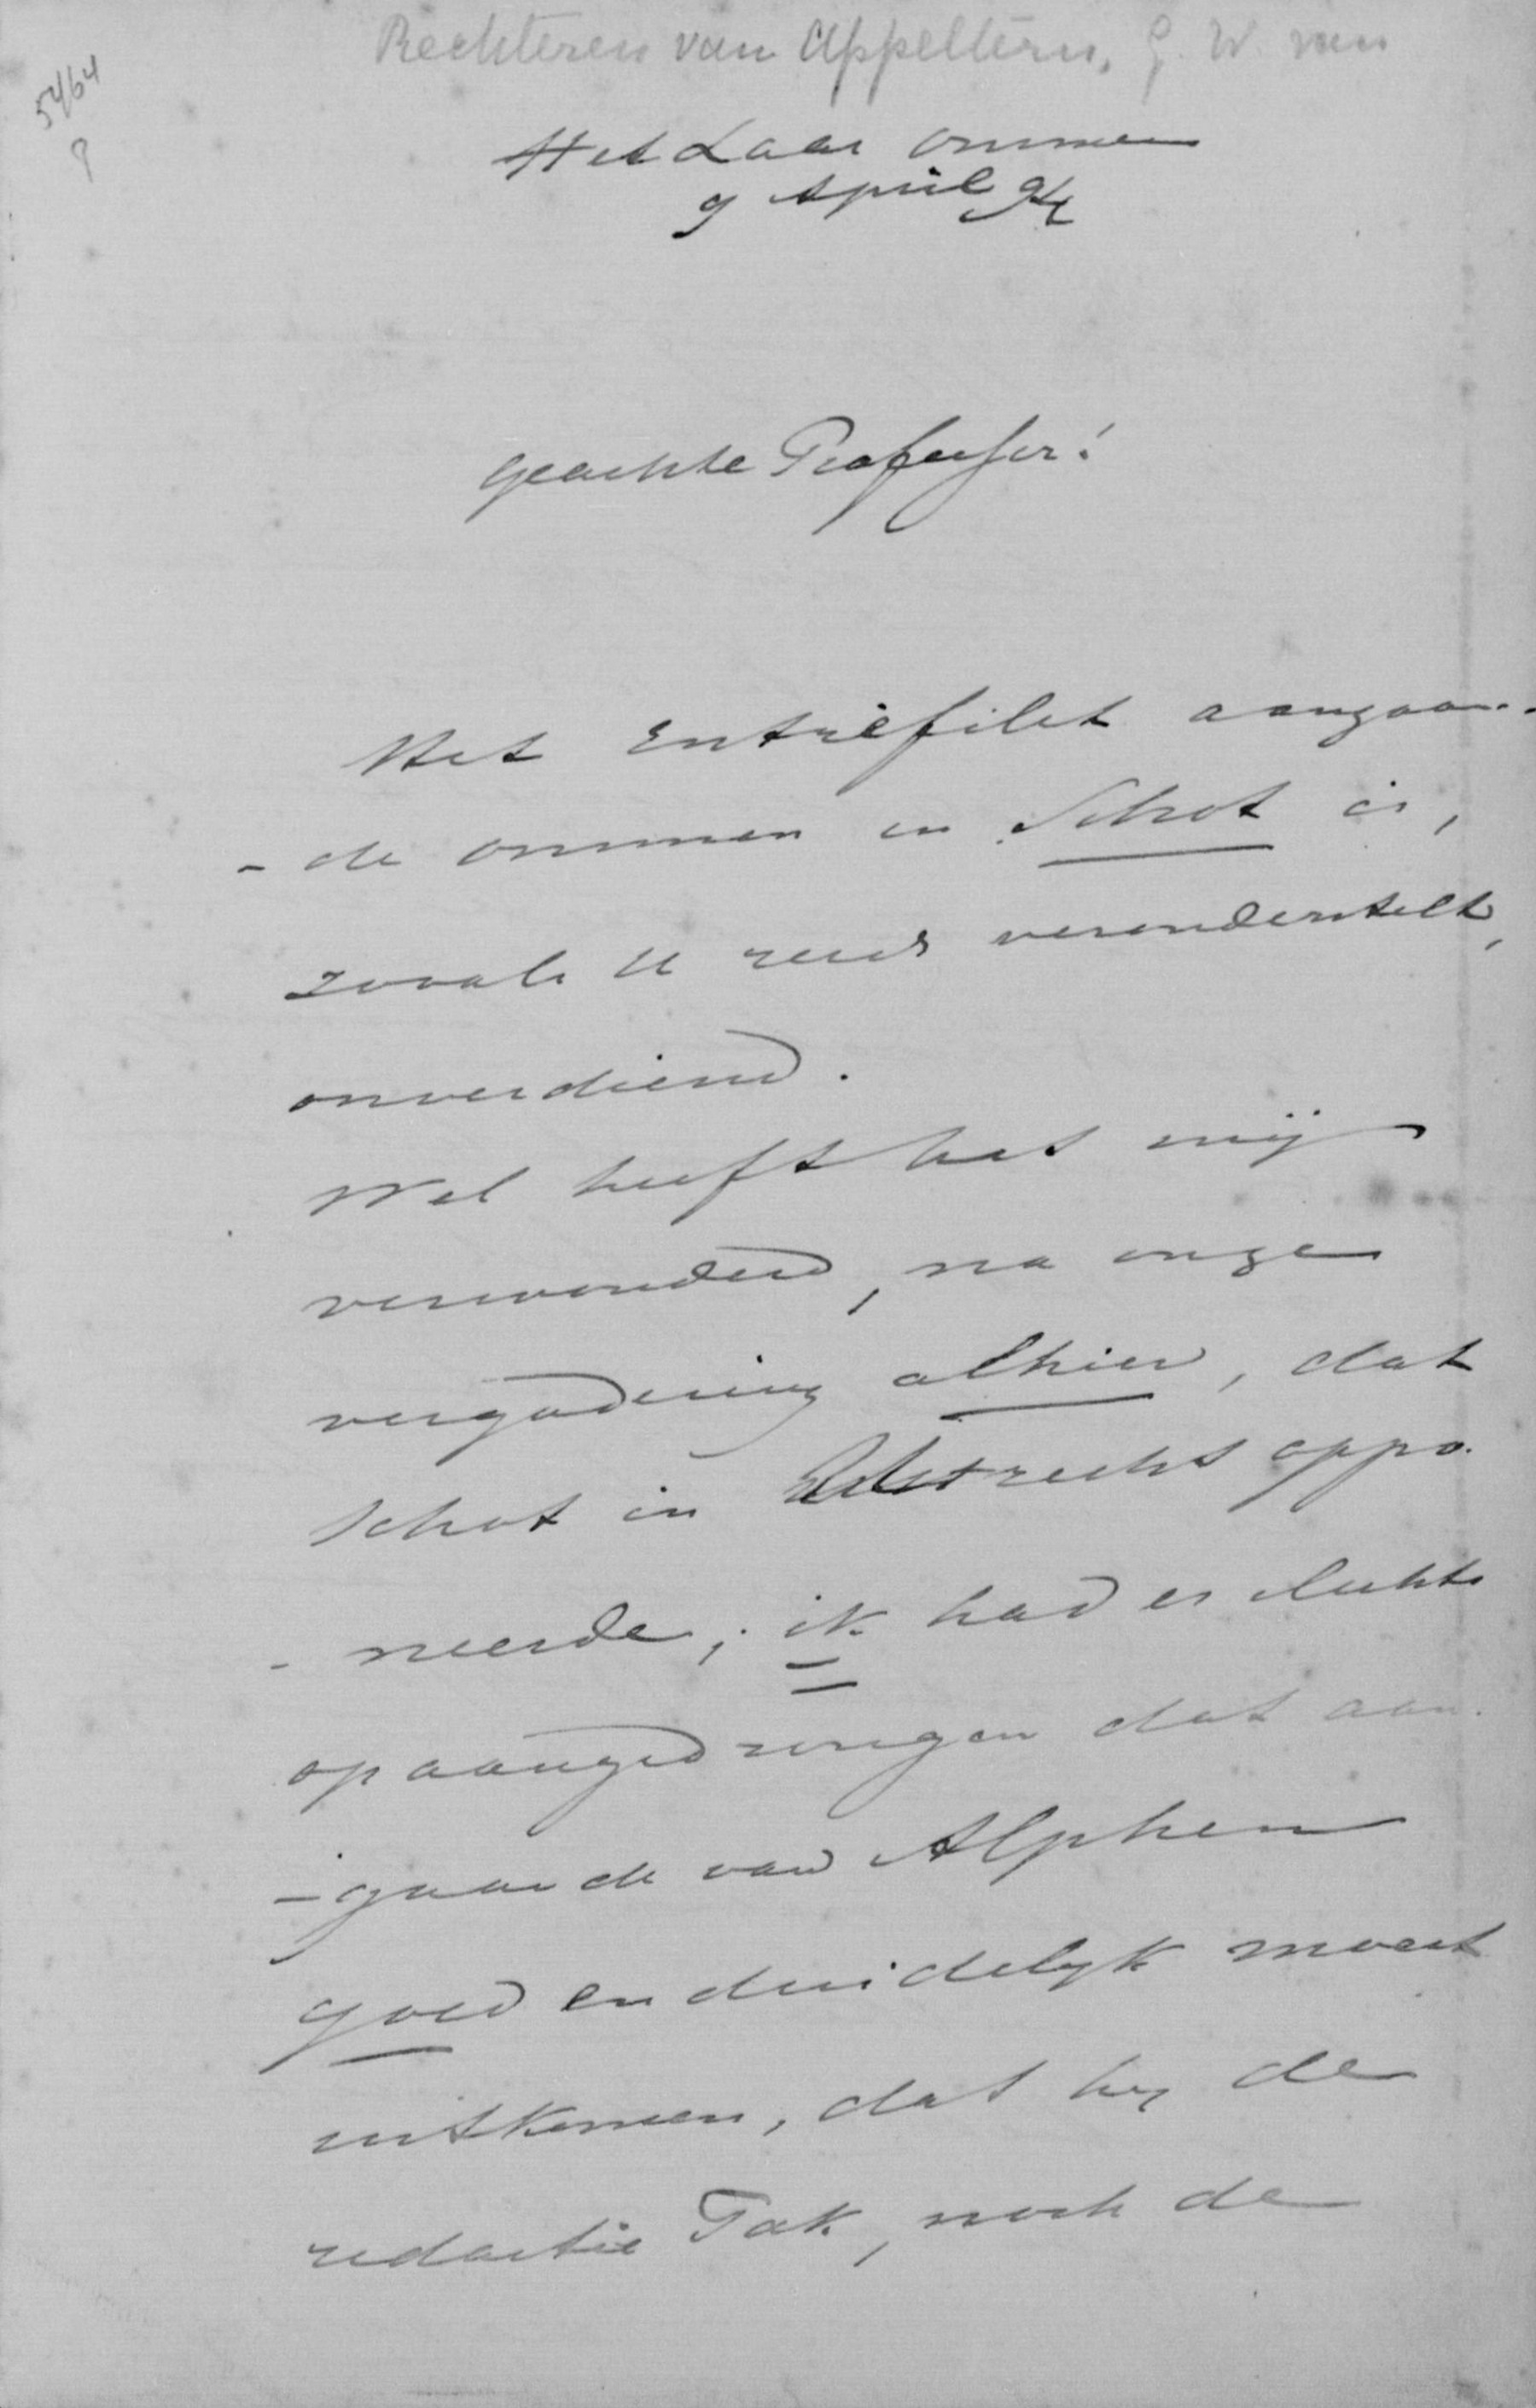 Rechteren van Appeltern, G. W. van
5464
Het Laar Ommen
9 April 94
Geachte Professor!
Het Entrefilet aangaan-
-de Ommen en Schot is,
zooals U reeds veronderstelt,
onverdiend.
Wel heeft het mij
verwonderd, na onze
vergadering alhier, dat
Schot in Utrecht oppo-
-neerde; ik had er slechts
op aangedrongen dat aan-
-gaande van Alphen
goed en duidelyk moest
uitkomen, dat hy de
redactie Tak, noch de